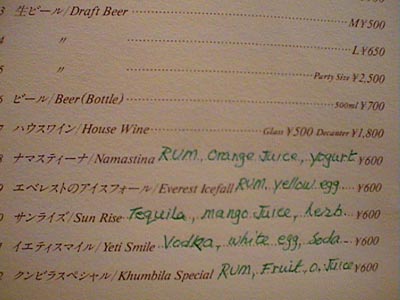 3 生ビール/Draft Beer M¥500
4 〃 L¥650
5 〃 Party Size ¥2,500
6 ビール/Beer(Bottle) 500ml ¥700
7 ハウスワイン/House Wine Glass ¥500 Decanter ¥1,800
8 ナマスティーナ/Namastina RUM, Orange Juice, yogurt ¥600
9 エベレストのアイスフォール/Everest Icefall RUM, yellow egg ¥600
0 サンライズ/Sun Rise Tequila, mango Juice, herb ¥600
1 イエティスマイル/Yeti Smile Vodka, white egg, Soda ¥600
2 クンビラスペシャル/Khumbila Special RUM, Fruit, O. Juice ¥600